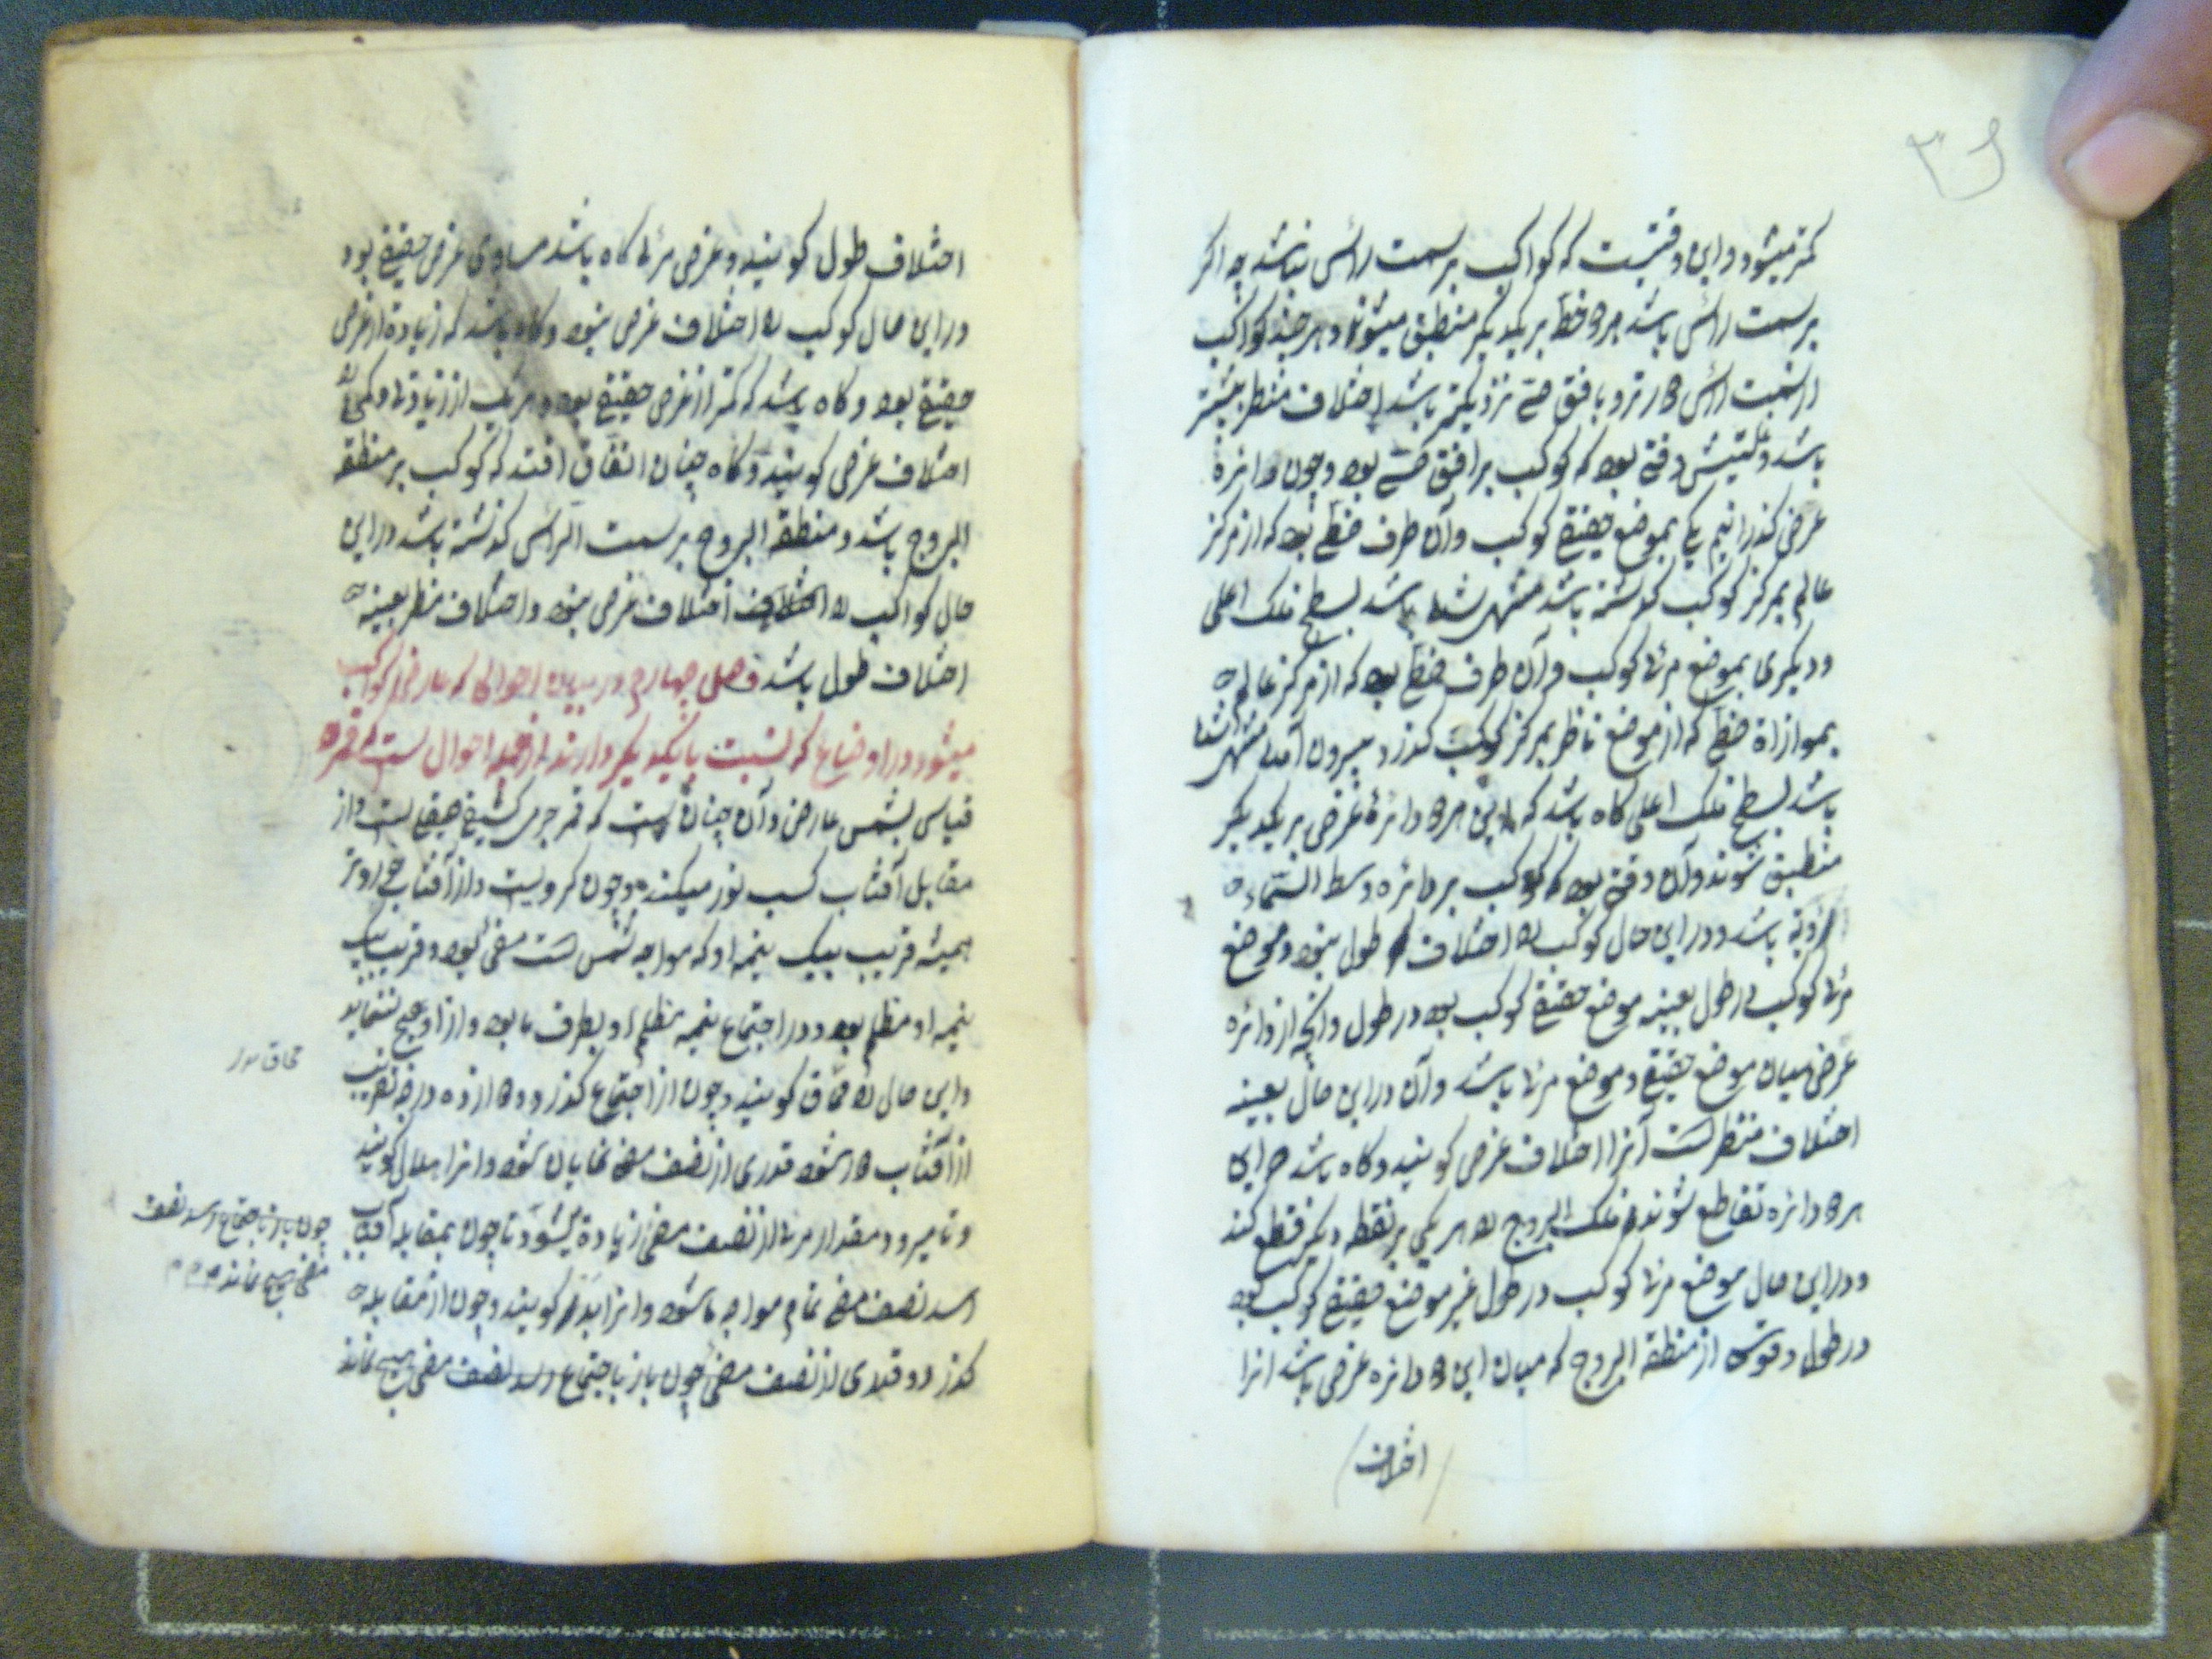 ۳۶
کمتر میشود و این وقتیست که کواکب بر سمت راس نباشد چه اکر
بر سمت راس باشد هر دو خط بر یکدیکر منطبق میشوند و هر چند کواکب
از سمت راس دورتر و بافق حسی نزدیکتر باشد اختلاف منظر بیشتر
باشد و غایتش وقتی بود که کوکب بر افق حسی بود و چون دو دایره
عرض کذرانیم یکی بموضع حقیقی کوکب و آن طرف خطی بود که از مرکز
عالم بمرکز کوکب کذشته باشد منتهی شده باشد بسطح فلک اعلی
و دیکری بموضع مرئی کوکب و آن طرف خطی بود که از مرکز عالم
بموازاة خطی که از موضع ناظر بمرکز کوکب کذرد بیرون آمده منتهی شده
باشد بسطح فلک اعلی کاه باشد که این هر دو دائرهٔ عرض بر یکدیکر
منطبق شوند و آن وقتی بود که کوکب بر دائره وسط السماء
رؤیة باشد و در این حال کوکب را اختلاف طول نبود و موضع
مرئی کوکب در طول بعینه موضع حقیقی کوکب بود در طول و آنچه از دائره
عرض میان موضع حقیقی و موضع مرئی باشد و آن در این حال بعینه
اختلاف منظر است آنرا اختلاف عرض کویند و کاه باشد که این
هر دو دایره تقاطع شوند و فلک البروج را هر یکی بر نقطه دیکر قطع کند
و در این حال موضع مرئی کوکب در طول غیر موضع حقیقی کوکب بود
در طول و قوس از منطقة البروج که میان این دو دایره عرض باشد انرا
اختلاف
اختلاف طول کویند و عرض مرئی کاه باشد مساوی عرض حقیقی بود
در این حال کوکب را اختلاف عرض نبود و کاه باشد که زیادة از عرض
حقیقی بود و کاه باشد که کمتر از عرض حقیقی بود و هر یک از زیادتی و کمی را
اختلاف عرض کویند و کاه چنان اتفاق افتد که کوکب بر منطقة
البروج باشد و منطقة البروج بر سمت الراس کذشته باشد در این
حال کواکب را اختلاف عرض نبود و اختلاف منظر بعینه
اختلاف طول باشد فصل چهارم در بیان احوالی که عارض کواکب
میشود در اوضاع که نسبت با یکدیکر دارند از جمله احوال است که قمر را
قیاس بشمس عارض و آن چنان است که قمر جرمی کثیف صیقلیست و از
مقابل آفتاب کسب نور میکند و چون کرویست و از آفتاب خوردتر
همیشه قریب بیک نیمه او که مواجه شمس است مضیٔ بود و قریب بیک
نیمه او مظلم بود و در اجتماع نیمه مظلم او بطرف ما بود و از او هیچ ننماید
و این حال را محاق کویند و چون از اجتماع کذرد و دوازده درجه تقریب
از آفتاب دور شود قدری از نصف مضیٔ نمایان شود و انرا هلال کویند
و تا میرود مقدار مرئی از نصف مضیٔ زیادة میشود تا چون بمقابله آفتاب
رسد نصف مضیٔ تمام مواجه ما شود و انرا بدر کویند و چون از مقابله
کذرد و قدری از نصف مضیٔ چون باز باجتماع رسد نصف مضیٔ هیچ نماند
چون باز باجتماع رسد نصف
مضیٔ هیچ نماند